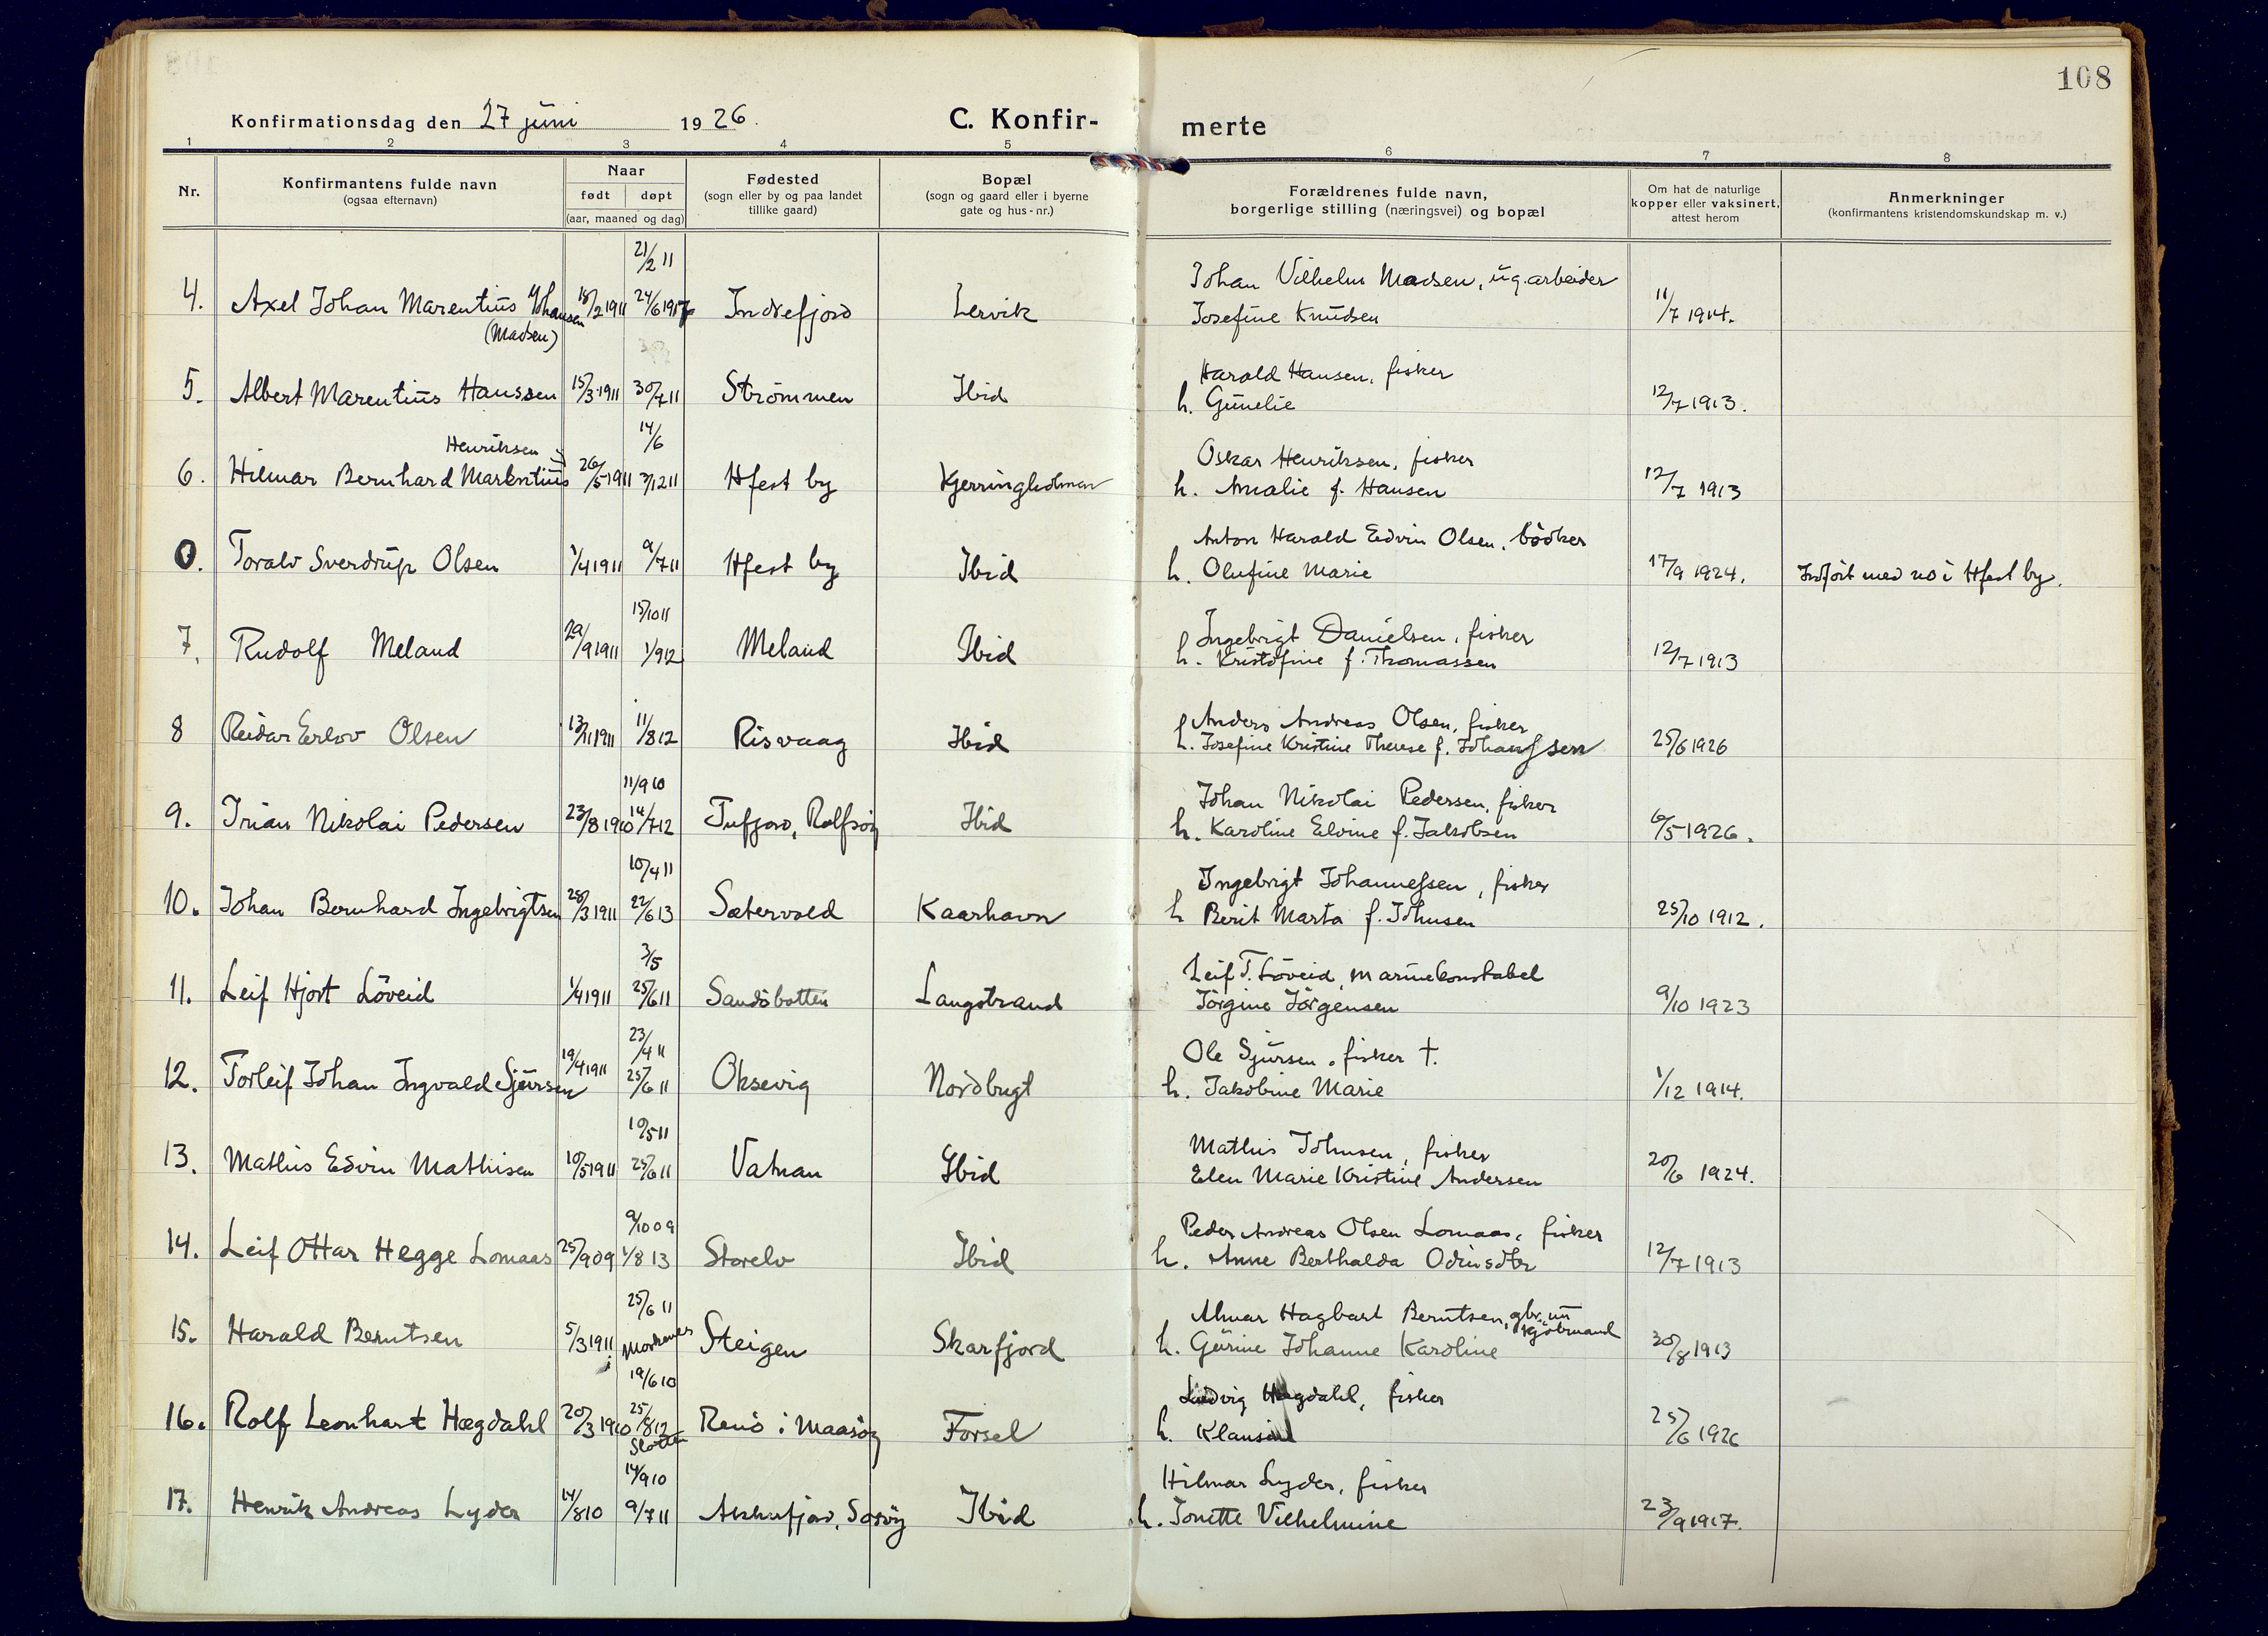 108
Konfirmationsdag den 27 juni 1926.
C. Konfir- merte
1 2 3 4 5 6 7 8
Nr.
Konfirmantens fulde navn
(ogsaa efternavn)
Naar
født døpt
(aar, maaned og dag)
Fødested
(sogn eller by og paa landet
tillike gaard)
Bopæl
(sogn og gaard eller i byerne
gate og hus-nr.)
Forældrenes fulde navn,
borgerlige stilling (næringsvei) og bopæl
Om hat de naturlige
kopper eller vaksinert,
attest herom
Anmerkninger
(konfirmantens kristendomskundskap m. v.)
21/2 11
Johan Vilhelm Madsen, ug. arbeider
4. Axel Johan Marentius Johansen 18/2 1911 24/6 1917 Indrefjord Lervik Josefine Knudsen 11/7 1914.
(Madsen)
Harald Hansen, fisker
5. Albert Marentius Hanssen 15/3 1911 30/7 11 Strømmen Ibid h. Gunelie 12/7 1913.
Henriksen 14/6
Oskar Henriksen, fisker
6. Hilmar Bernhard Marentius 26/5 1911 3/12 11 Hfest by Kjerringholmen h. Amalie f. Hansen 12/7 1913
Anton Harald Edvin Olsen, bødker
0. Toralv Sverdrup Olsen 1/4 1911 9/7 11 Hfest by Ibid h. Olufine Marie 17/9 1924. Indført med no i Hfest by.
15/10 11
Ingebrigt Danielsen, fisker
7. Rudolf Meland 29/9 1911 1/9 12 Meland Ibid h. Kristofine f. Thomassen 12/7 1913
Anders Andreas Olsen, fisker
8 Reidar Erlov Olsen 13/11 1911 11/8 12 Risvaag Ibid h. Josefine Kristine Therese f. Johanssen 25/6 1926
11/9 10
Johan Nikolai Pedersen, fisker
9. Trian Nikolai Pedersen 23/8 1910 14/7 12 Tufjord, Rolfsøy Ibid h. Karoline Elvine f. Jakobsen 6/5 1926.
10/4 11
Ingebrigt Johannessen, fisker
10. Johan Bernhard Ingebrigtsen 28/3 1911 22/6 13 Sætervold Kaarhavn h Berit Marta f. Johnsen 25/10 1912.
3/5
Leif T. Løveid, marinekonstabel
11. Leif Hjort Løveid 1/4 1911 25/6 11 Sandøbotten Langstrand Jørgine Jørgensen 9/10 1923
23/4 11
Ole Sjursen, fisker †.
12. Torleif Johan Ingvald Sjursen 19/4 1911 25/6 11 Oksevig Nordbugt h. Jakobine Marie 1/12 1914.
10/5 11
Mathis Johnsen, fisker
13. Mathis Edvin Mathisen 10/5 1911 25/6 11 Vatnan Ibid Elen Marie Kristine Andersen 20/6 1924.
9/10 09
Peder Andreas Olsen Lomaas, fisker
14. Leif Ottar Hegge Lomaas 25/9 09 1/8 13 Storelv Ibid h. Anne Berthalda Odinsdtr 12/7 1913
25/6 11
Almar Hagbart Berntsen, gbr. un
kjøbmand
15. Harald Berntsen 5/3 1911 Steigen Skarfjord h. Gurine Johanne Karoline 30/8 1913
19/6 10
Ludvig Hægdahl, fisker
16. Rolf Leonhart Hægdahl 20/3 1910 25/8 12 Renø i Maasøy Forsøl h. Klausine 25/6 1926
Slotten
14/9 10
Hilmar Lyder, fisker
17. Henrik Andreas Lyder 14/8 10 9/7 11 Sørøy Ibid h. Jonette Vilhelmine 23/9 1917.